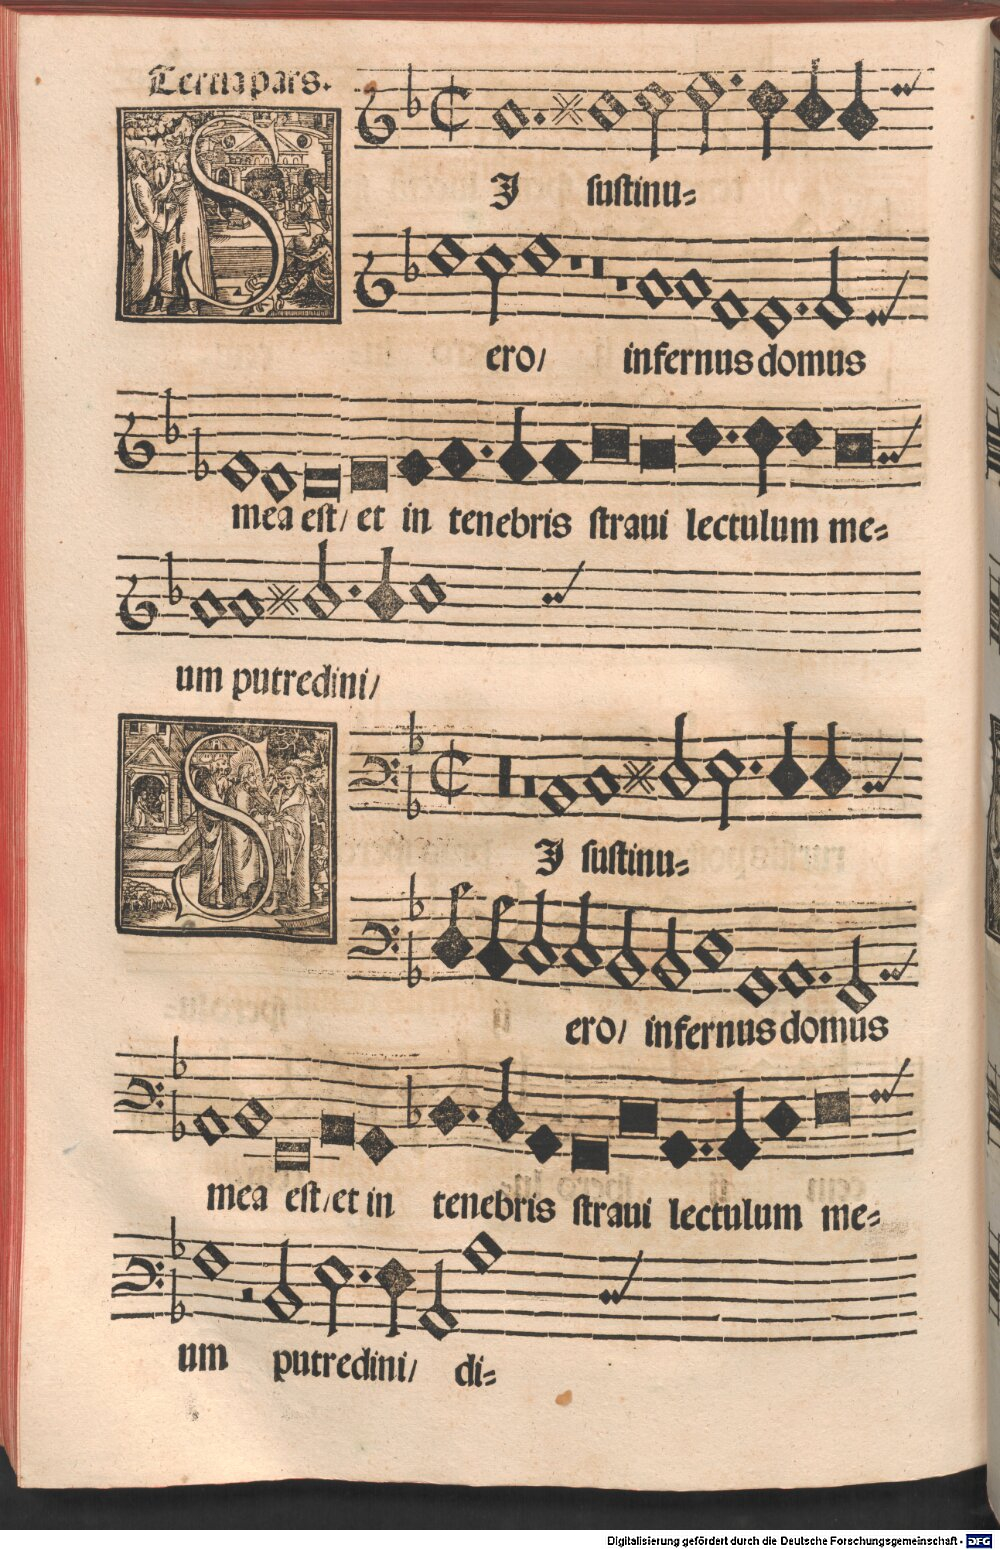 Tertia pars.
SI sustinu=
ero/ infernus domus
mea est/ et in tenebris straui lectulum me=
um putredini/
SI sustinu=
ero/ infernus domus
mea est/et in tenebris straui lectulum me=
um putredini/ di=
Digitalisierung gefördert durch die Deutsche Forschungsgemeinschaft - DFG